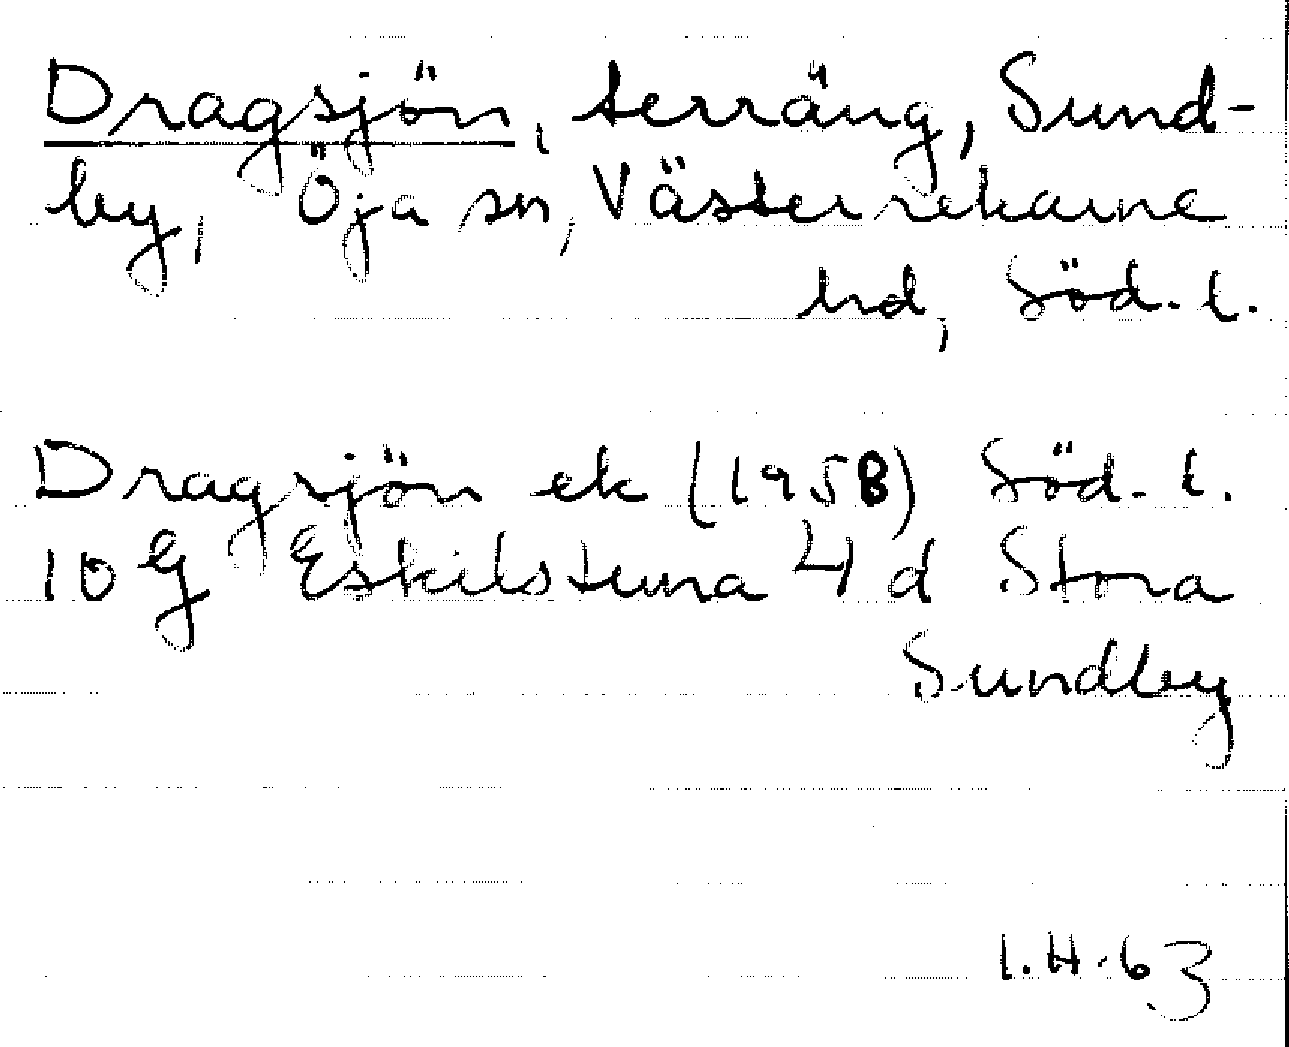 Dragsjön, terräng, Sund-
by, Öja sn, Västerrekarne
hd, Söd. l.
Dragsjön ek (1958) Söd. l.
10 G Eskilstuna 4 d Stora
Sundby
I.H. 63